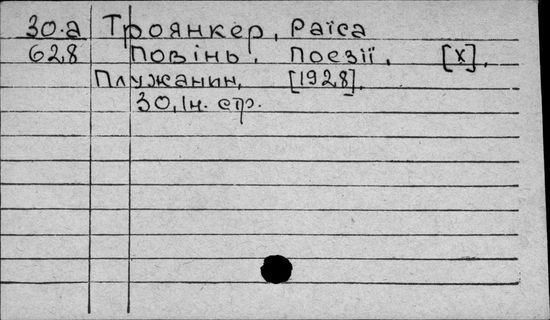 30.а Троянкер, Раїса
628 Повінь. Поезії. [Х],
Плужанин, [1928].
30,1н. стр.